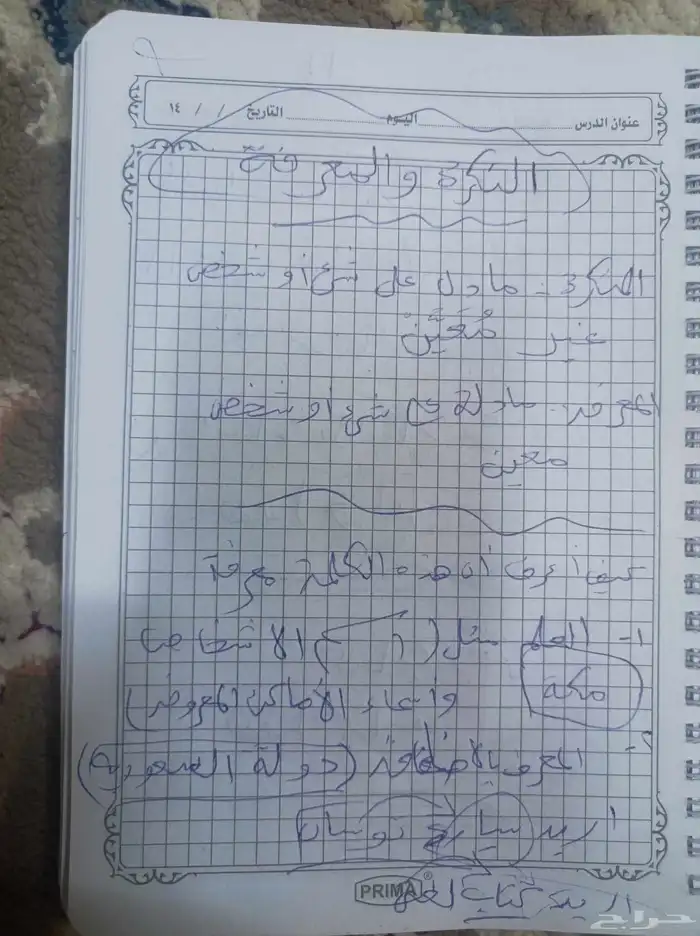 عنوان الدرس اليوم التاريخ / / ١٤
النكرة والمعرفة
النكرة - مادل على شيء أو شخص
غير مُعَيَّن
المعرفة - مادل على شيء أو شخص
معين
كيف أعرف أن هذه الكلمة معرفة
١- العلم مثل ( أسماء الأشخاص
مكة
وأسماء الأماكن المعروفة)
٢- المعرف بالإضافة (دولة السعودية)
أريد سيارة نوسان
أريد كتاب العلم
PRIMA®
حراج